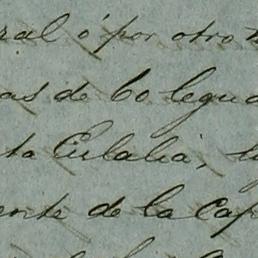 ral ó por otro
as de 60 legua
ta Eulalia,
ente de la Cap